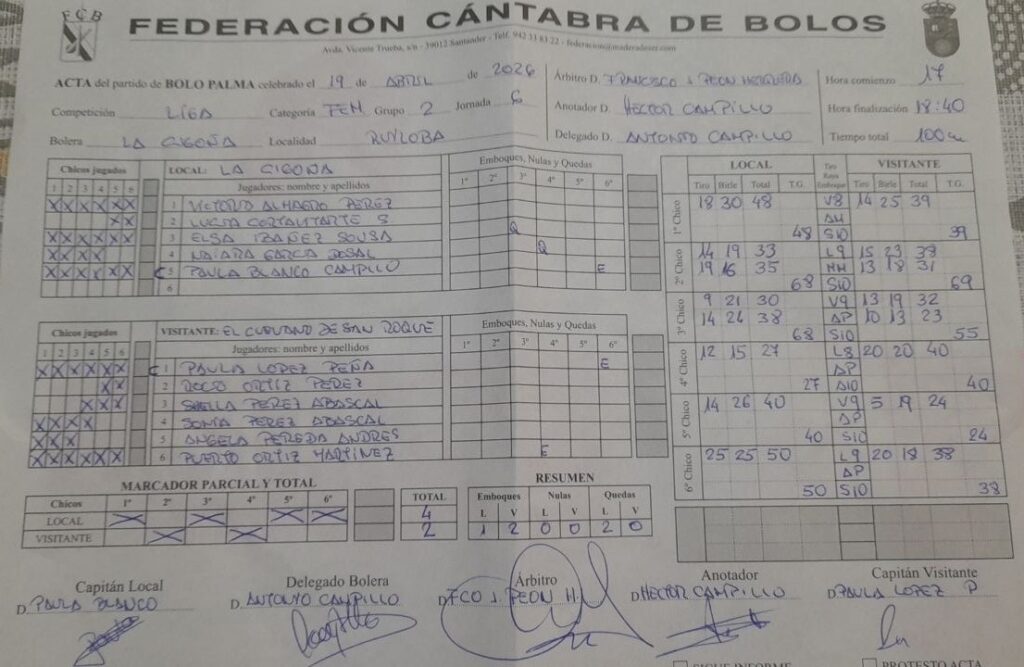 FCB
FEDERACIÓN CÁNTABRA DE BOLOS
Avda. Vicente Trueba, s/n - 39012 Santander - Telf. 942 33 83 22 - federacion@maderadeser.com
ACTA del partido de BOLO PALMA celebrado el 19 de ABRIL de 2026
Competición LIGA Categoría FEM Grupo 2 Jornada 6
Bolera LA CIGOÑA Localidad RUILOBA
Árbitro D. FRANCISCO J. PEON HERGUERA
Anotador D. HECTOR CAMPILLO
Delegado D. ANTONIO CAMPILLO
Hora comienzo 17
Hora finalización 18:40
Tiempo total 100m
Chicos jugados LOCAL: LA CIGOÑA Emboques, Nulas y Quedas
1 2 3 4 5 6 Jugadores: nombre y apellidos 1º 2º 3º 4º 5º 6º
X X X X X X 1 VICTORIA ALMAGRO PEREZ
X X 2 LUCIA S.
X X X X X X 3 ELSA IBAÑEZ SOUSA Q
X X X X 4 NAIARA GARCIA Q
X X X X X X C 5 PAULA BLANCO CAMPILLO E
6
Chicos jugados VISITANTE: EL CUEVANO DE SAN ROQUE Emboques, Nulas y Quedas
1 2 3 4 5 6 Jugadores: nombre y apellidos 1º 2º 3º 4º 5º 6º
X X X X X X C 1 PAULA LOPEZ PEÑA E
X X 2 ROCIO ORTIZ PEREZ
X X X 3 SHEILA PEREZ ABASCAL
X X X X 4 SONIA PEREZ ABASCAL
X X X 5 ANGELA PEREDA ANDRES
X X X X X X 6 PUERTO ORTIZ MARTINEZ E
LOCAL Tiro Raya Emboque VISITANTE
Tiro Birle Total T.G. Tiro Birle Total T.G.
1º Chico 18 30 48 V8 14 25 39
AM
48 S10 39
2º Chico 14 19 33 L9 15 23 38
19 16 35 MM 13 18 31
68 S10 69
3º Chico 9 21 30 V9 13 19 32
14 24 38 AP 10 13 23
68 S10 55
4º Chico 12 15 27 L8 20 20 40
AP
27 A10 40
5º Chico 14 26 40 V9 5 19 24
AP
40 S10 24
6º Chico 25 25 50 L9 20 18 38
AP
50 S10 38
MARCADOR PARCIAL Y TOTAL
Chicos 1º 2º 3º 4º 5º 6º TOTAL
LOCAL X X X X 4
VISITANTE X X 2
RESUMEN
Emboques Nulas Quedas
L V L V L V
1 2 0 0 2 0
Capitán Local
D. PAULA BLANCO
Delegado Bolera
D. ANTONIO CAMPILLO
Árbitro
D. FCO J. PEON H.
Anotador
D. HECTOR CAMPILLO
Capitán Visitante
D. PAULA LOPEZ P
PROTESTO ACTA